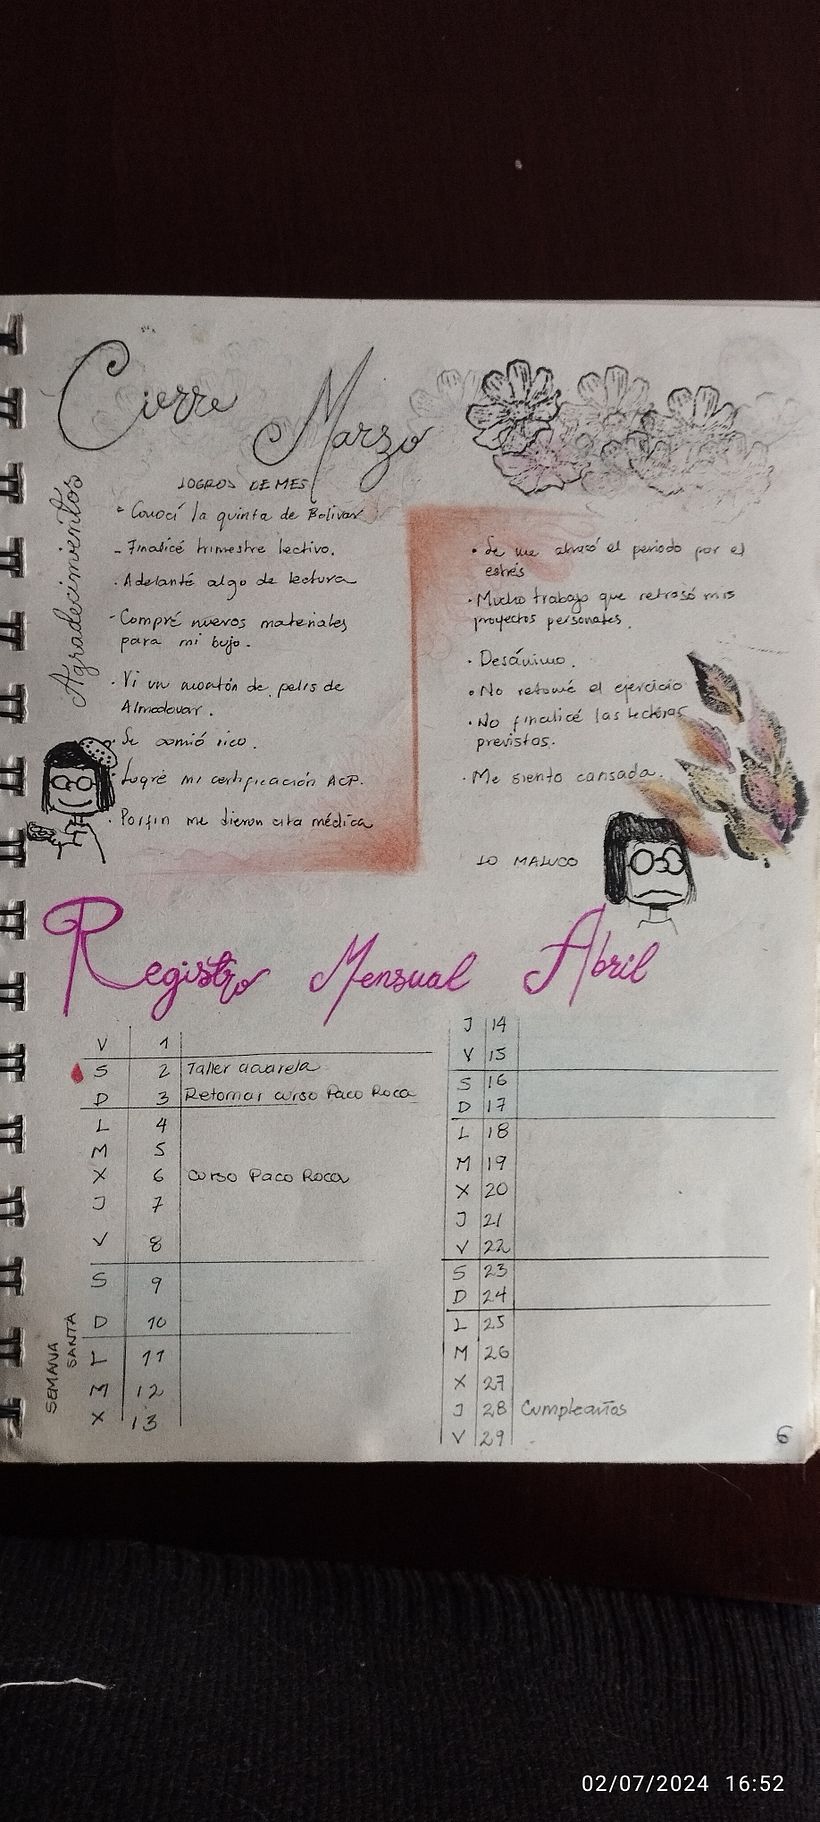 Cierre Marzo
Agradecimientos
LOGROS DE MES
- Conocí la quinta de Bolívar
- Finalicé trimestre lectivo.
· Adelanté algo de lectura
- Compré nuevos materiales
para mi bujo.
· Vi un montón de pelis de
Almodovar.
· Se comió rico.
· Logré mi certificación ACP.
· Porfin me dieron cita médica
· Se me atrasó el periodo por el
estrés
· Mucho trabajo que retrasó mis
proyectos personales.
· Desánimo.
· No retomé el ejercicio
· No finalicé las lecturas
previstas.
· Me siento cansada.
LO MALUCO
Registro Mensual Abril
V 1
S 2 Taller acuarela
D 3 Retomar curso Paco Roca
L 4
M 5
X 6 Curso Paco Roca
J 7
V 8
S 9
D 10
L 11
M 12
X 13
SEMANA
SANTA
J 14
V 15
S 16
D 17
L 18
M 19
X 20
J 21
V 22
S 23
D 24
L 25
M 26
X 27
J 28 Cumpleaños
V 29
6
02/07/2024 16:52